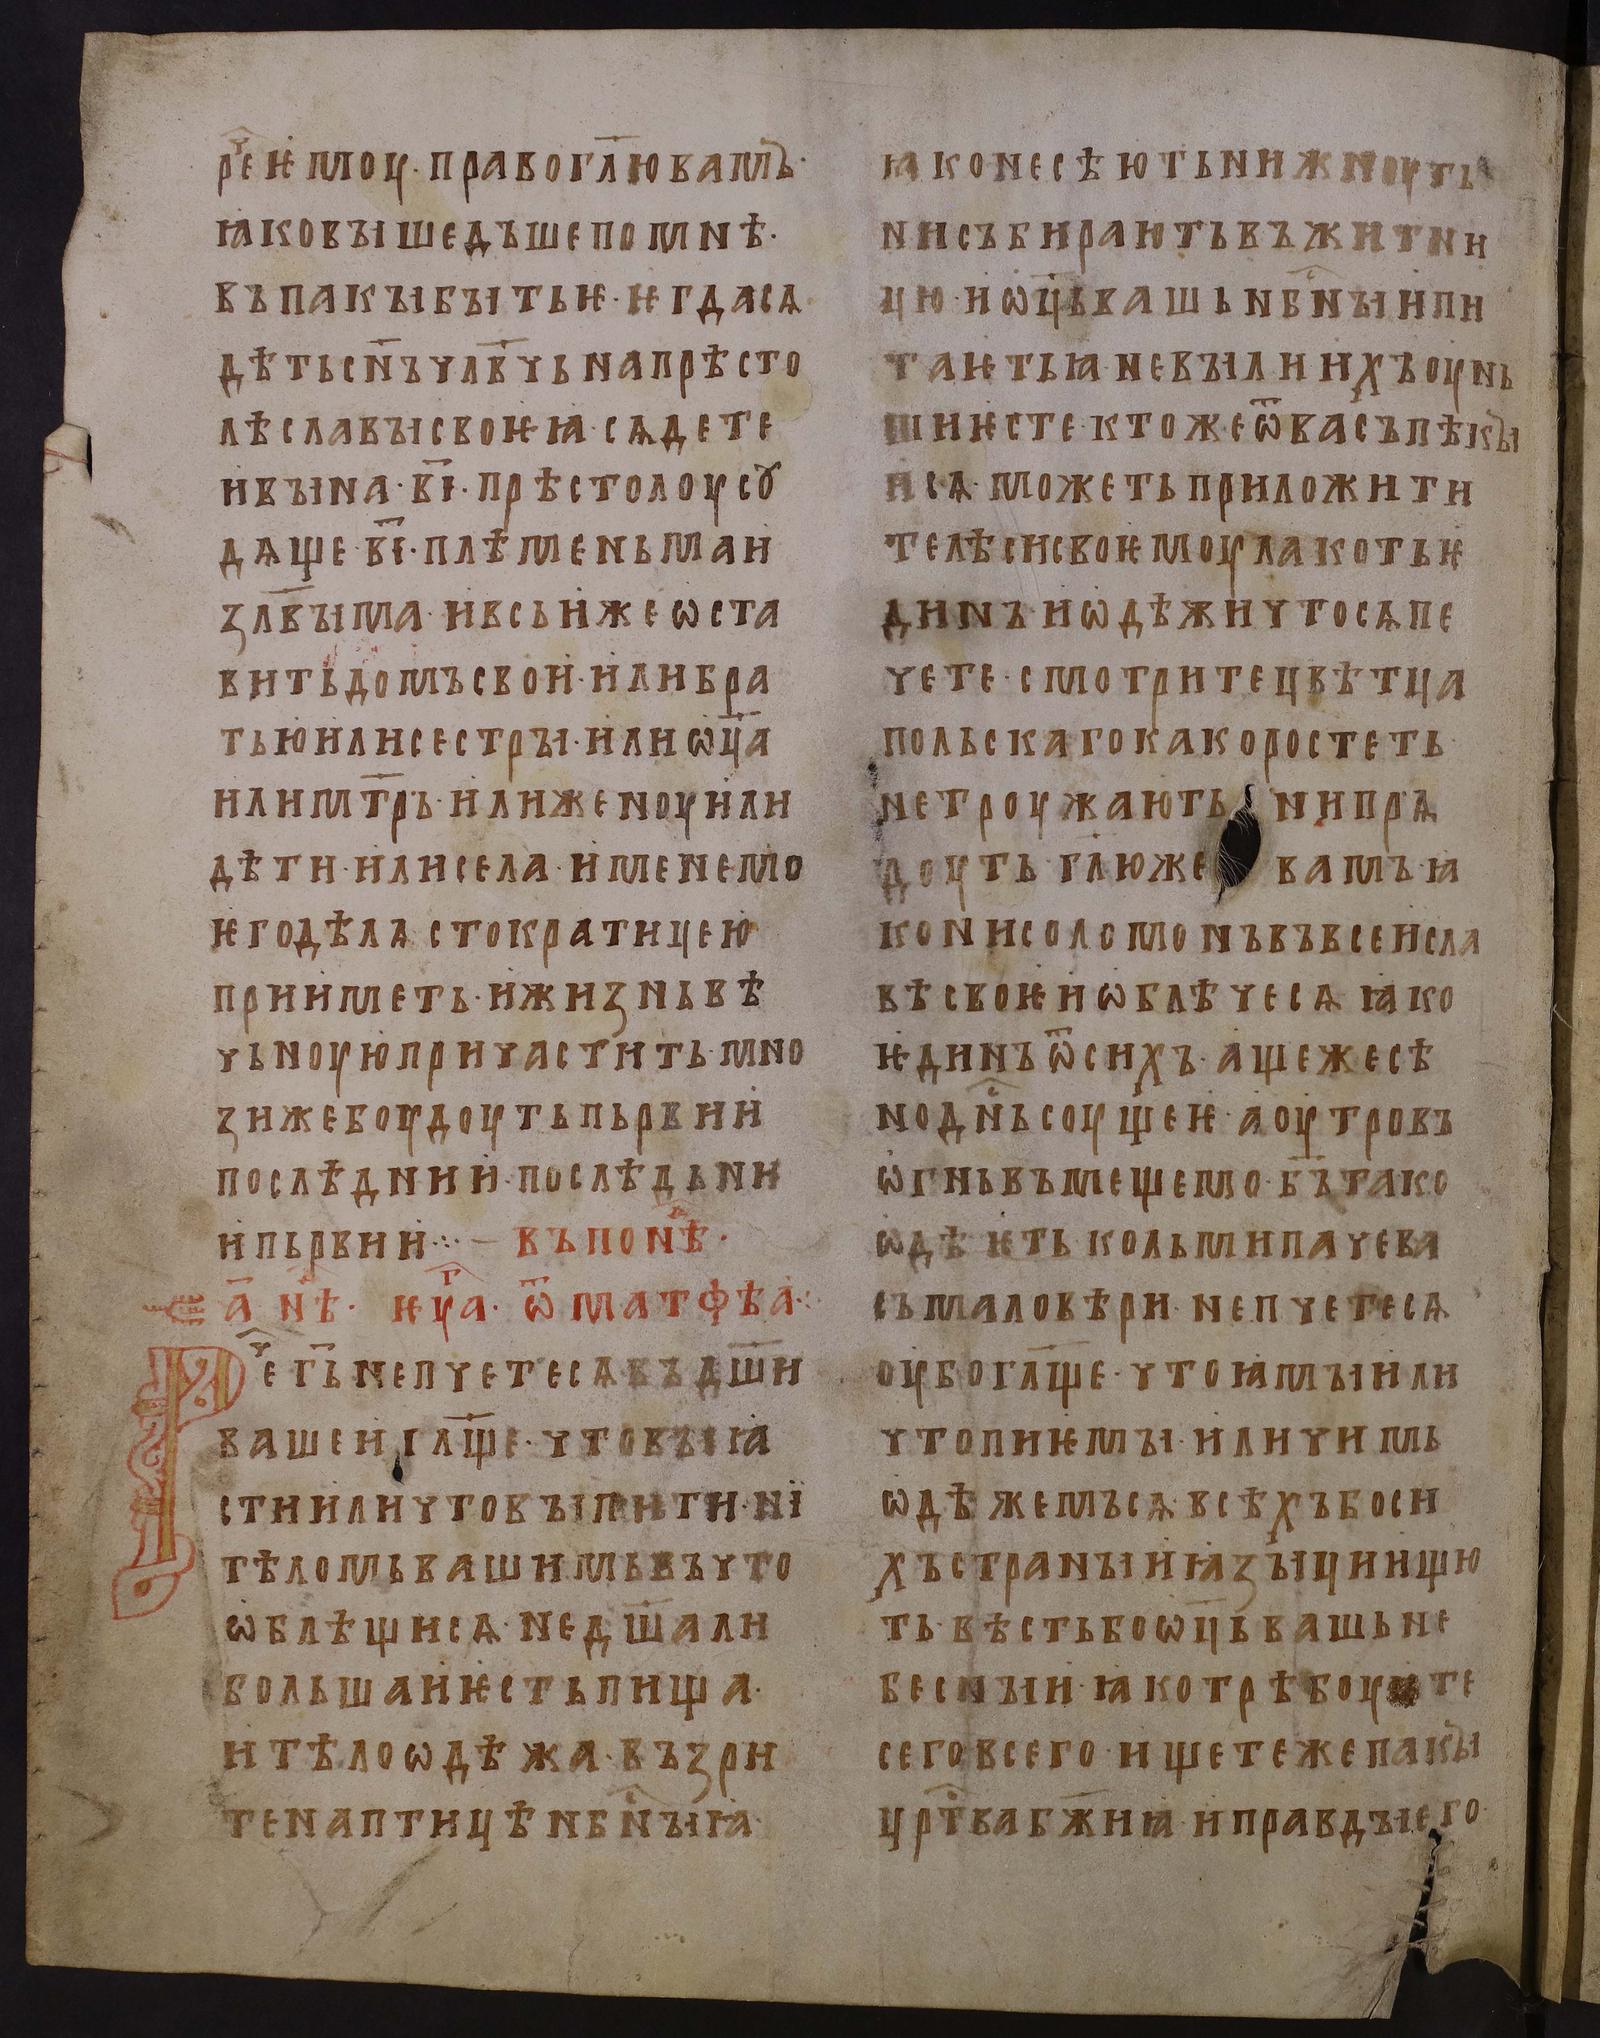 реч҇ ѥмоу· право гл҃ю вамъ·
ꙗко вꙑ шедъше по мнѣ·
въ пакꙑбꙑтьѥ· ѥгда сѧ
дѣть сн҃ъ члв҃чь на прѣсто
лѣ славꙑ своѥꙗ· сѧдете
и вꙑ на· в҃і· прѣстолоу сꙋ
дѧще· в҃і· плѣменьма и
ꙁл҃вꙑма· и вьсь иже ѡста
вить домъ свои· или бра
тью или сестрꙑ· или ѡц҃а
или мт҃рь· или женоу или
дѣти· или села· имене мо
ѥго дѣлѧ стократицею
прииметь· и жиꙁнь вѣ
чьноую причастить· мно
ꙁи же боудоуть пьрвии
послѣднии· послѣдьни
и пьрвии⁘ — въ понⷣѣ·
а҃ нⷣѣ· ѥу҃гⷢа· ѿ матфѣа⁘
Речⷱ г҃ь не пчетесѧ въ дш҃и
вашеи гл҃ще· что вꙑ ꙗ
сти или что вꙑ пити· ни
тѣломь вашимь въ что
ѡблѣщисѧ· не дш҃а ли
больши ѥсть пища·
и тѣло ѡдѣжа· въꙁри
те на птицѣ нбⷭ҇нꙑꙗ·
ꙗко не сѣють ни жноуть
ни събирають въ житни
цю· и ѡц҃ь вашь нбⷭ҇нꙑи пи
таѥть ꙗ· не вꙑ ли ихъ оунь
ши ѥсте· кто же ѿ вас ъ пѣкꙑ
исѧ· можеть приложити
телѣси своѥмоу лакоть ѥ
динъ· и ѡдѣжи что сѧ пе
чете· смотрите цвѣтца
польскаго како ростеть
не троужають ни прѧ
доуть· гл҃ю же вамъ ꙗ
ко ни соломонъ въ всеи сла
вѣ своѥи ѡблѣчесѧ ꙗко
ѥдинъ ѿ сихъ· аще же сѣ
но днⷭ҇ь соущеѥ· а оутро въ
ѡгнь въмещемо· б҃ъ тако
ѡдѣѥть кольми паче ва
съ маловѣри· не пчетесѧ
оубо гл҃ще· что ꙗмꙑ или
что пиѥмꙑ· или чимь
ѡдѣжемъсѧ· всѣхъ бо си
хъ странꙑи ꙗꙁꙑци ищю
ть· вѣсть бо ѡц҃ь вашь не
беснꙑи· ꙗко трѣбоуѥте
сего всего· ищете же пакꙑ
црⷭ҇тва бж҃иꙗ и правдꙑ его·